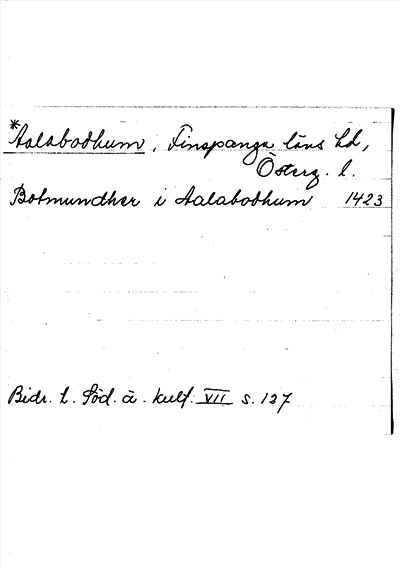 *Aalabodhum, Finspånga läns hd,
Österg. l.
Botmundher i Aalabodhum 1423
Bidr. t. Söd. ä. kulf. VII s. 127